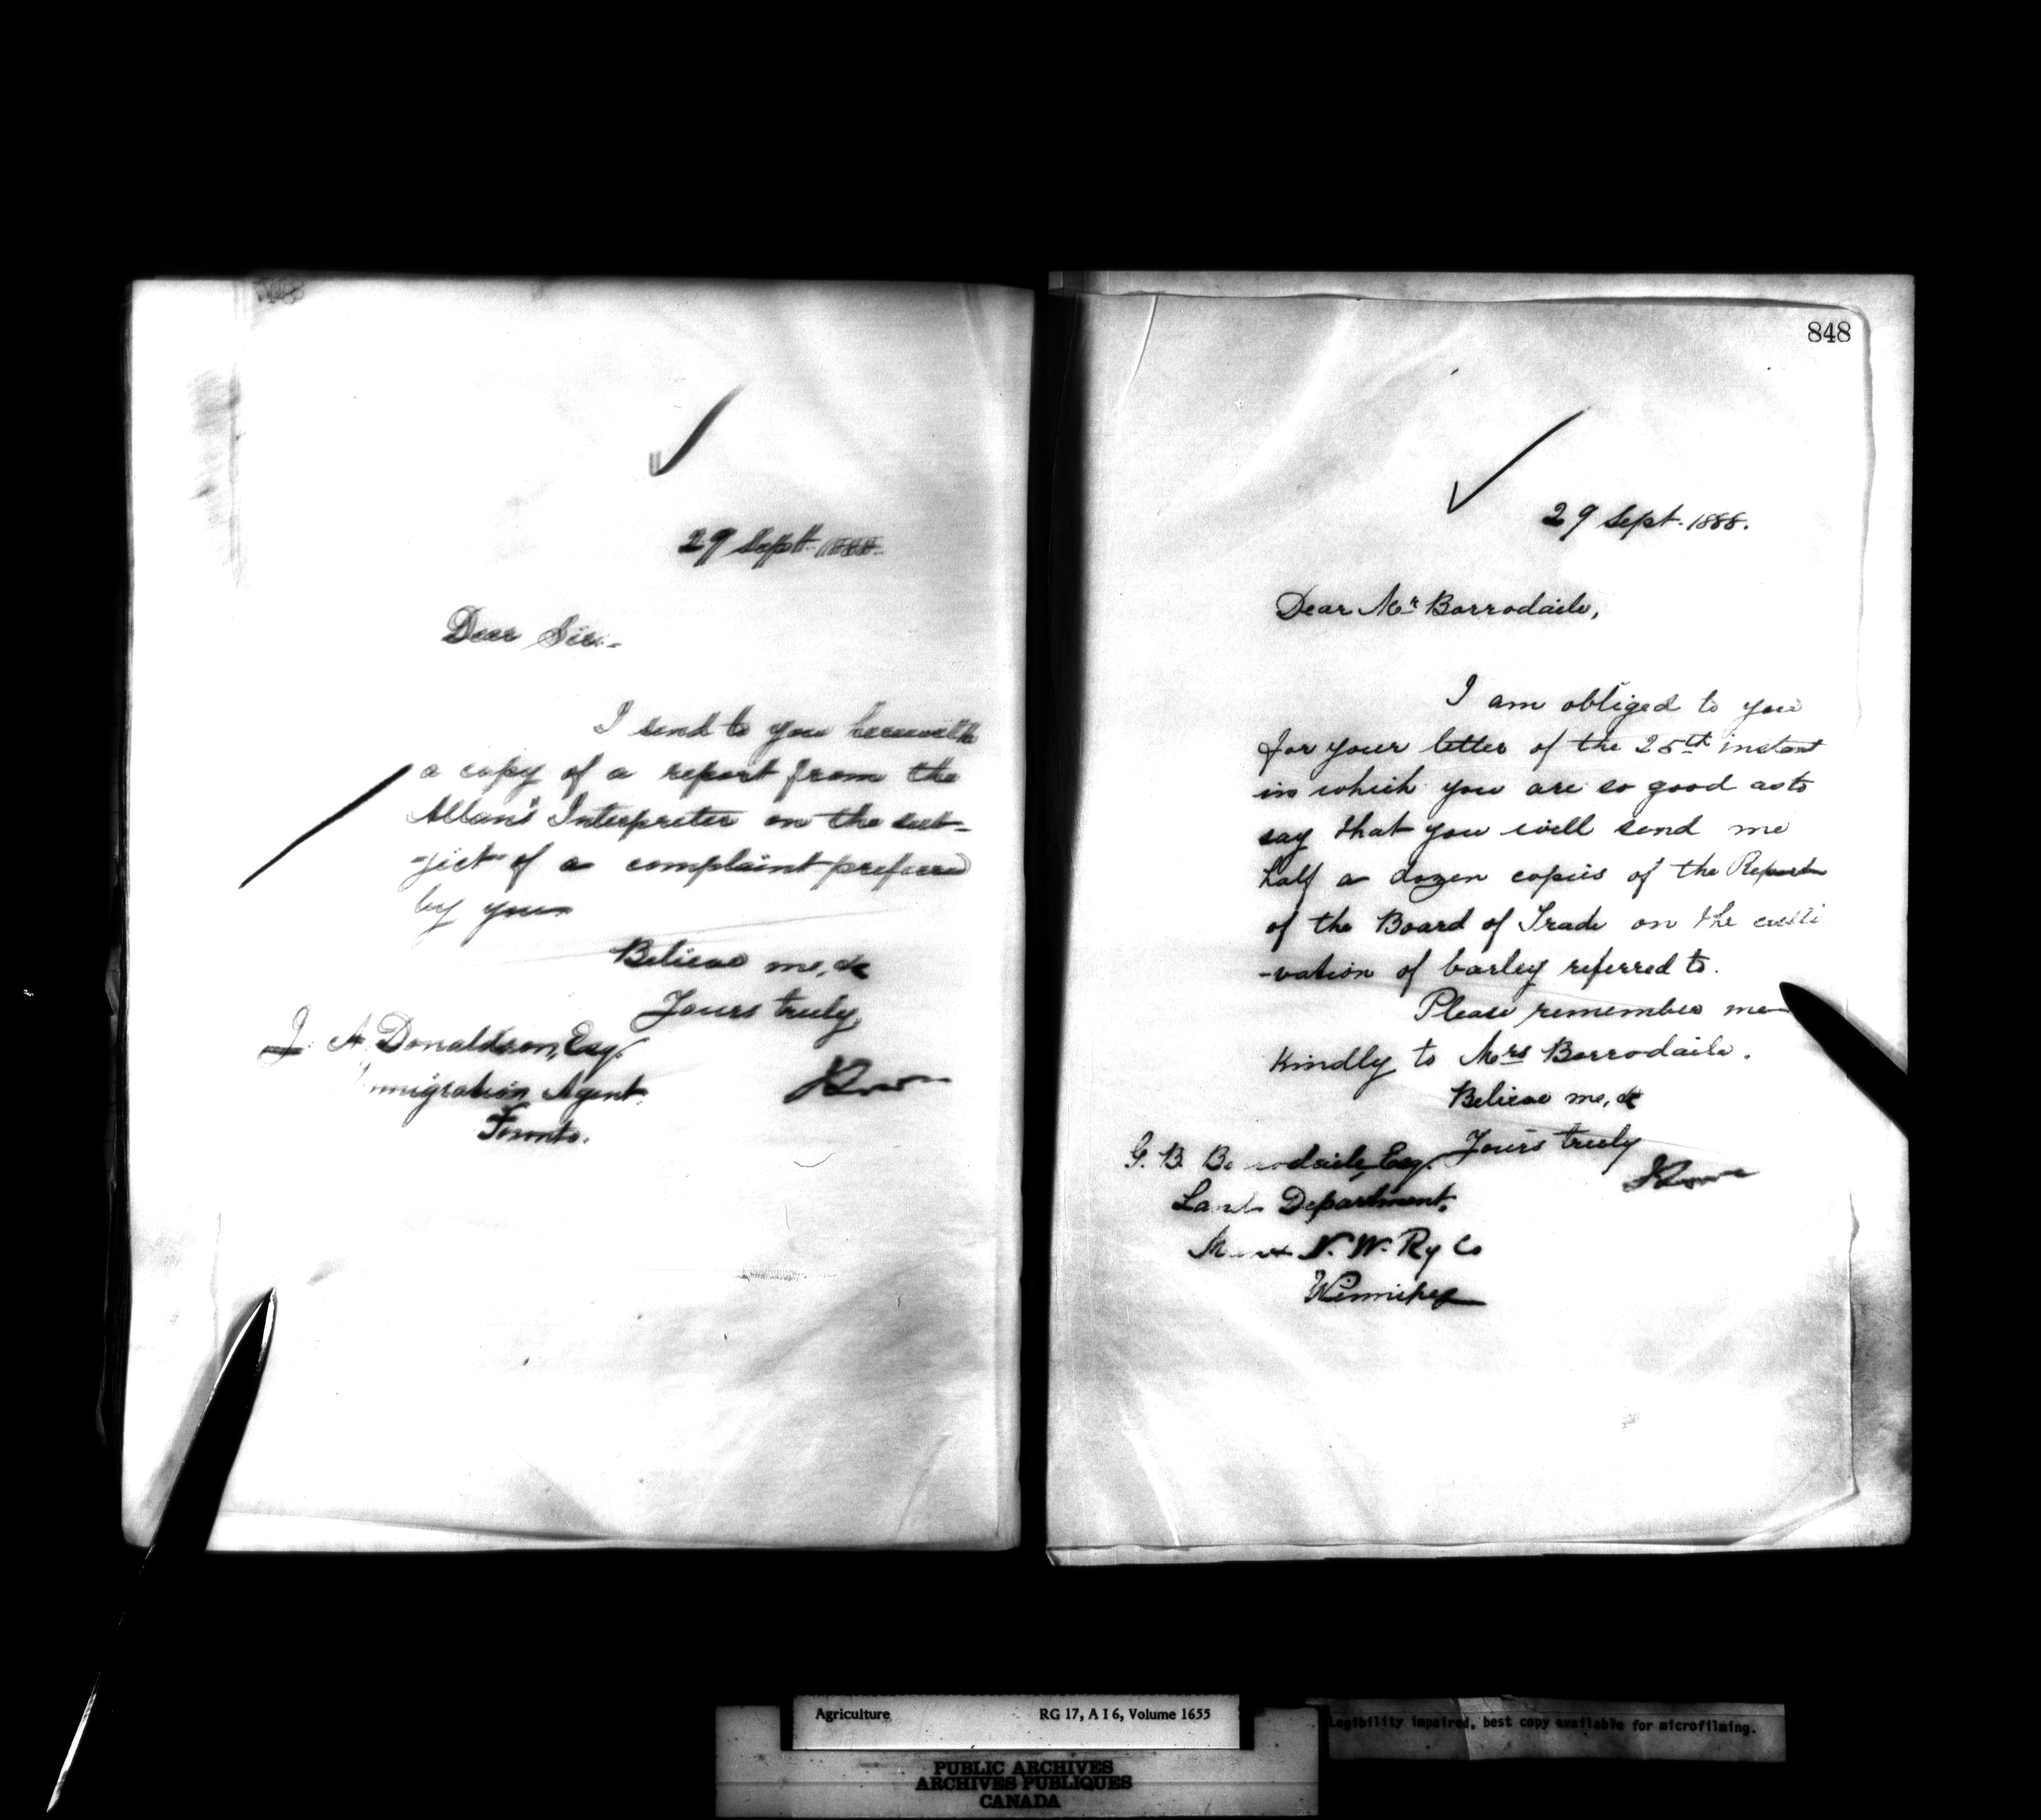 29 Sept. 1888.
Dear Sir.-
I send to you herewith
a copy of a report from the
Allan's Interpreter on the sub-
-ject of a complaint preferred
by you
Believe me, &
Yours truly,
J. A. Donaldson, Esq.
Immigration Agent.
Toronto.
848
29 Sept. 1888.
Dear Mr Borrodaile,
I am obliged to you
for your letter of the 25th instant
in which you are so good as to
say that you will send me
half a dozen copies of the Report
of the Board of Trade on the culti
-vation of barley referred to.
Please remember me
kindly to Mrs Borrodaile.
Believe me, &
Yours truly
G. B. Borrodaile, Esq.
Land Department.
N. W. Ry Co
Winnipeg
Agriculture RG 17, A I 6, Volume 1655
Legibility impaired, best copy available for microfilming.
PUBLIC ARCHIVES
ARCHIVES PUBLIQUES
CANADA